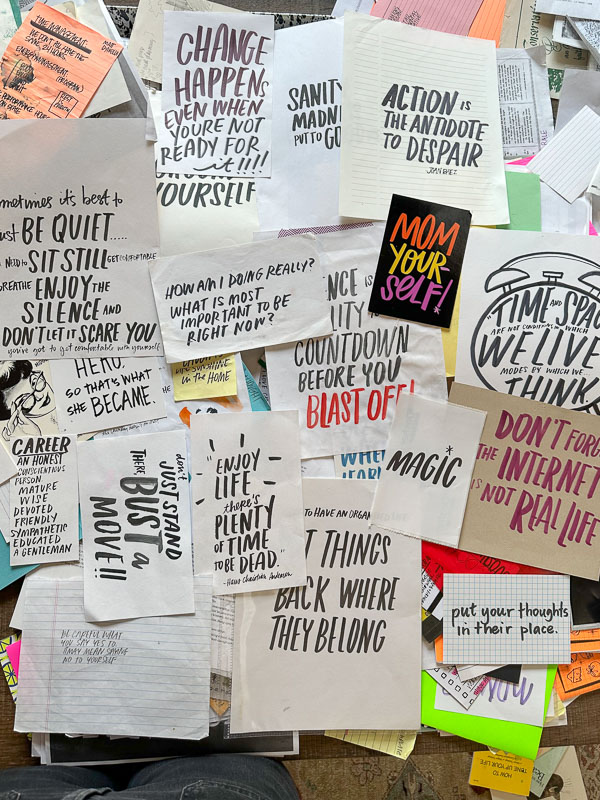 THE MANAGEMENT
CHANGE
HAPPENS
EVEN WHEN
YOU'RE NOT
READY FOR
it!!!!
YOURSELF
SANITY
MADN
PUT TO GO
ACTION IS
THE ANTIDOTE
TO DESPAIR
JOAN BAEZ
metimes it's best to
ust BE QUIET.....
NEED TO SIT STILL GET COMFORTABLE
BREATHE ENJOY THE
SILENCE AND
DON'T LET IT SCARE YOU
you've got to get comfortable with yourself
HOW AM I DOING REALLY?
WHAT IS MOST
IMPORTANT TO BE
RIGHT NOW?
MOM
YOUR-
SELF!
NCE IS
ITY
COUNTDOWN
BEFORE YOU
BLAST OFF!
TIME AND SPAC
ARE NOT CONDITIONS IN WHICH
WE LIVE
MODES BY WHICH WE
THINK
HERO.
SO THAT'S WHAT
SHE BECAME.
SUNSHINE
IN THE HOME
CAREER
AN HONEST
CONSCIENTIOUS
PERSON
MATURE
WISE
DEVOTED
FRIENDLY
SYMPATHETIC
EDUCATED
A GENTLEMAN
don't
JUST STAND
THERE
BUST a
MOVE!!
"ENJOY
LIFE
there's
PLENTY
OF TIME
TO BE DEAD."
-Hans Christian Andersen
WHEN
MAGIC
DON'T FORG
THE INTERNET
IS NOT REAL LIFE
TO HAVE AN ORGAN
T THINGS
BACK WHERE
THEY BELONG
put your thoughts
in their place.
BE CAREFUL WHAT
YOU SAY YES TO
IT MAY MEAN SAYING
NO TO YOURSELF
YOU
CREATE
HOW TO
TUNE UP YOUR
LIFE